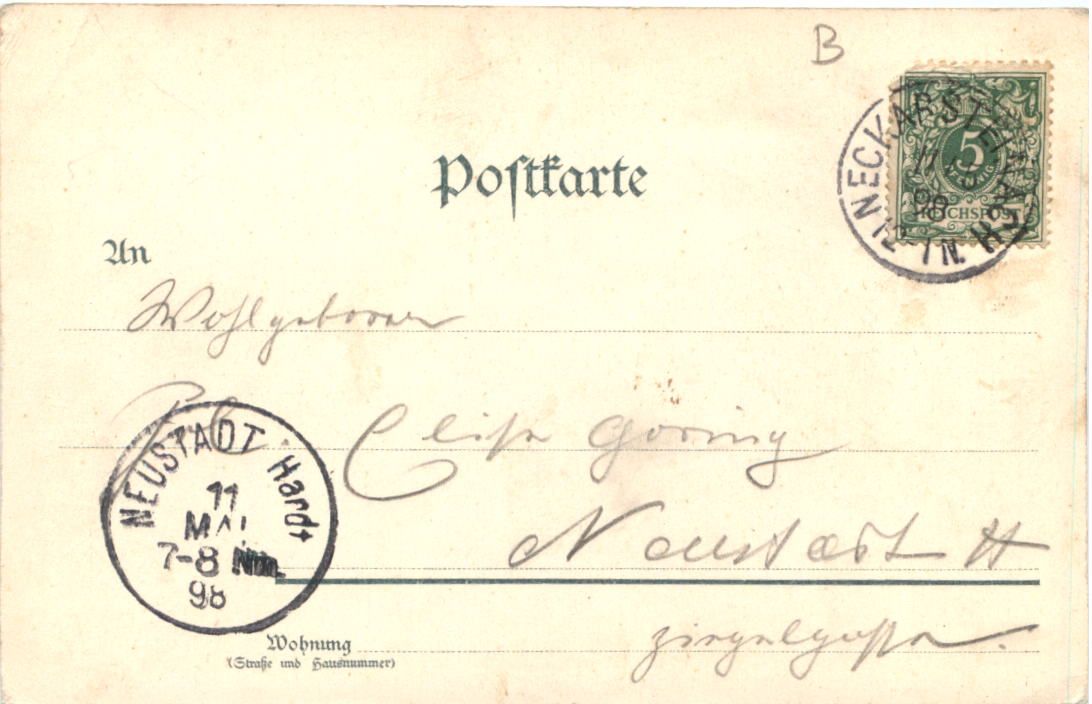 B
NECKARSTEINACH
11
98
12-1 N.
5
PFENNIG
REICHSPOST
Postkarte
An
Wohlgeboren
Elise
NEUSTADT Hardt
11
MAI
7-8 Nm.
98
Neustadt H
Wohnung
(Straße und Hausnummer)
Ziegelgasse.